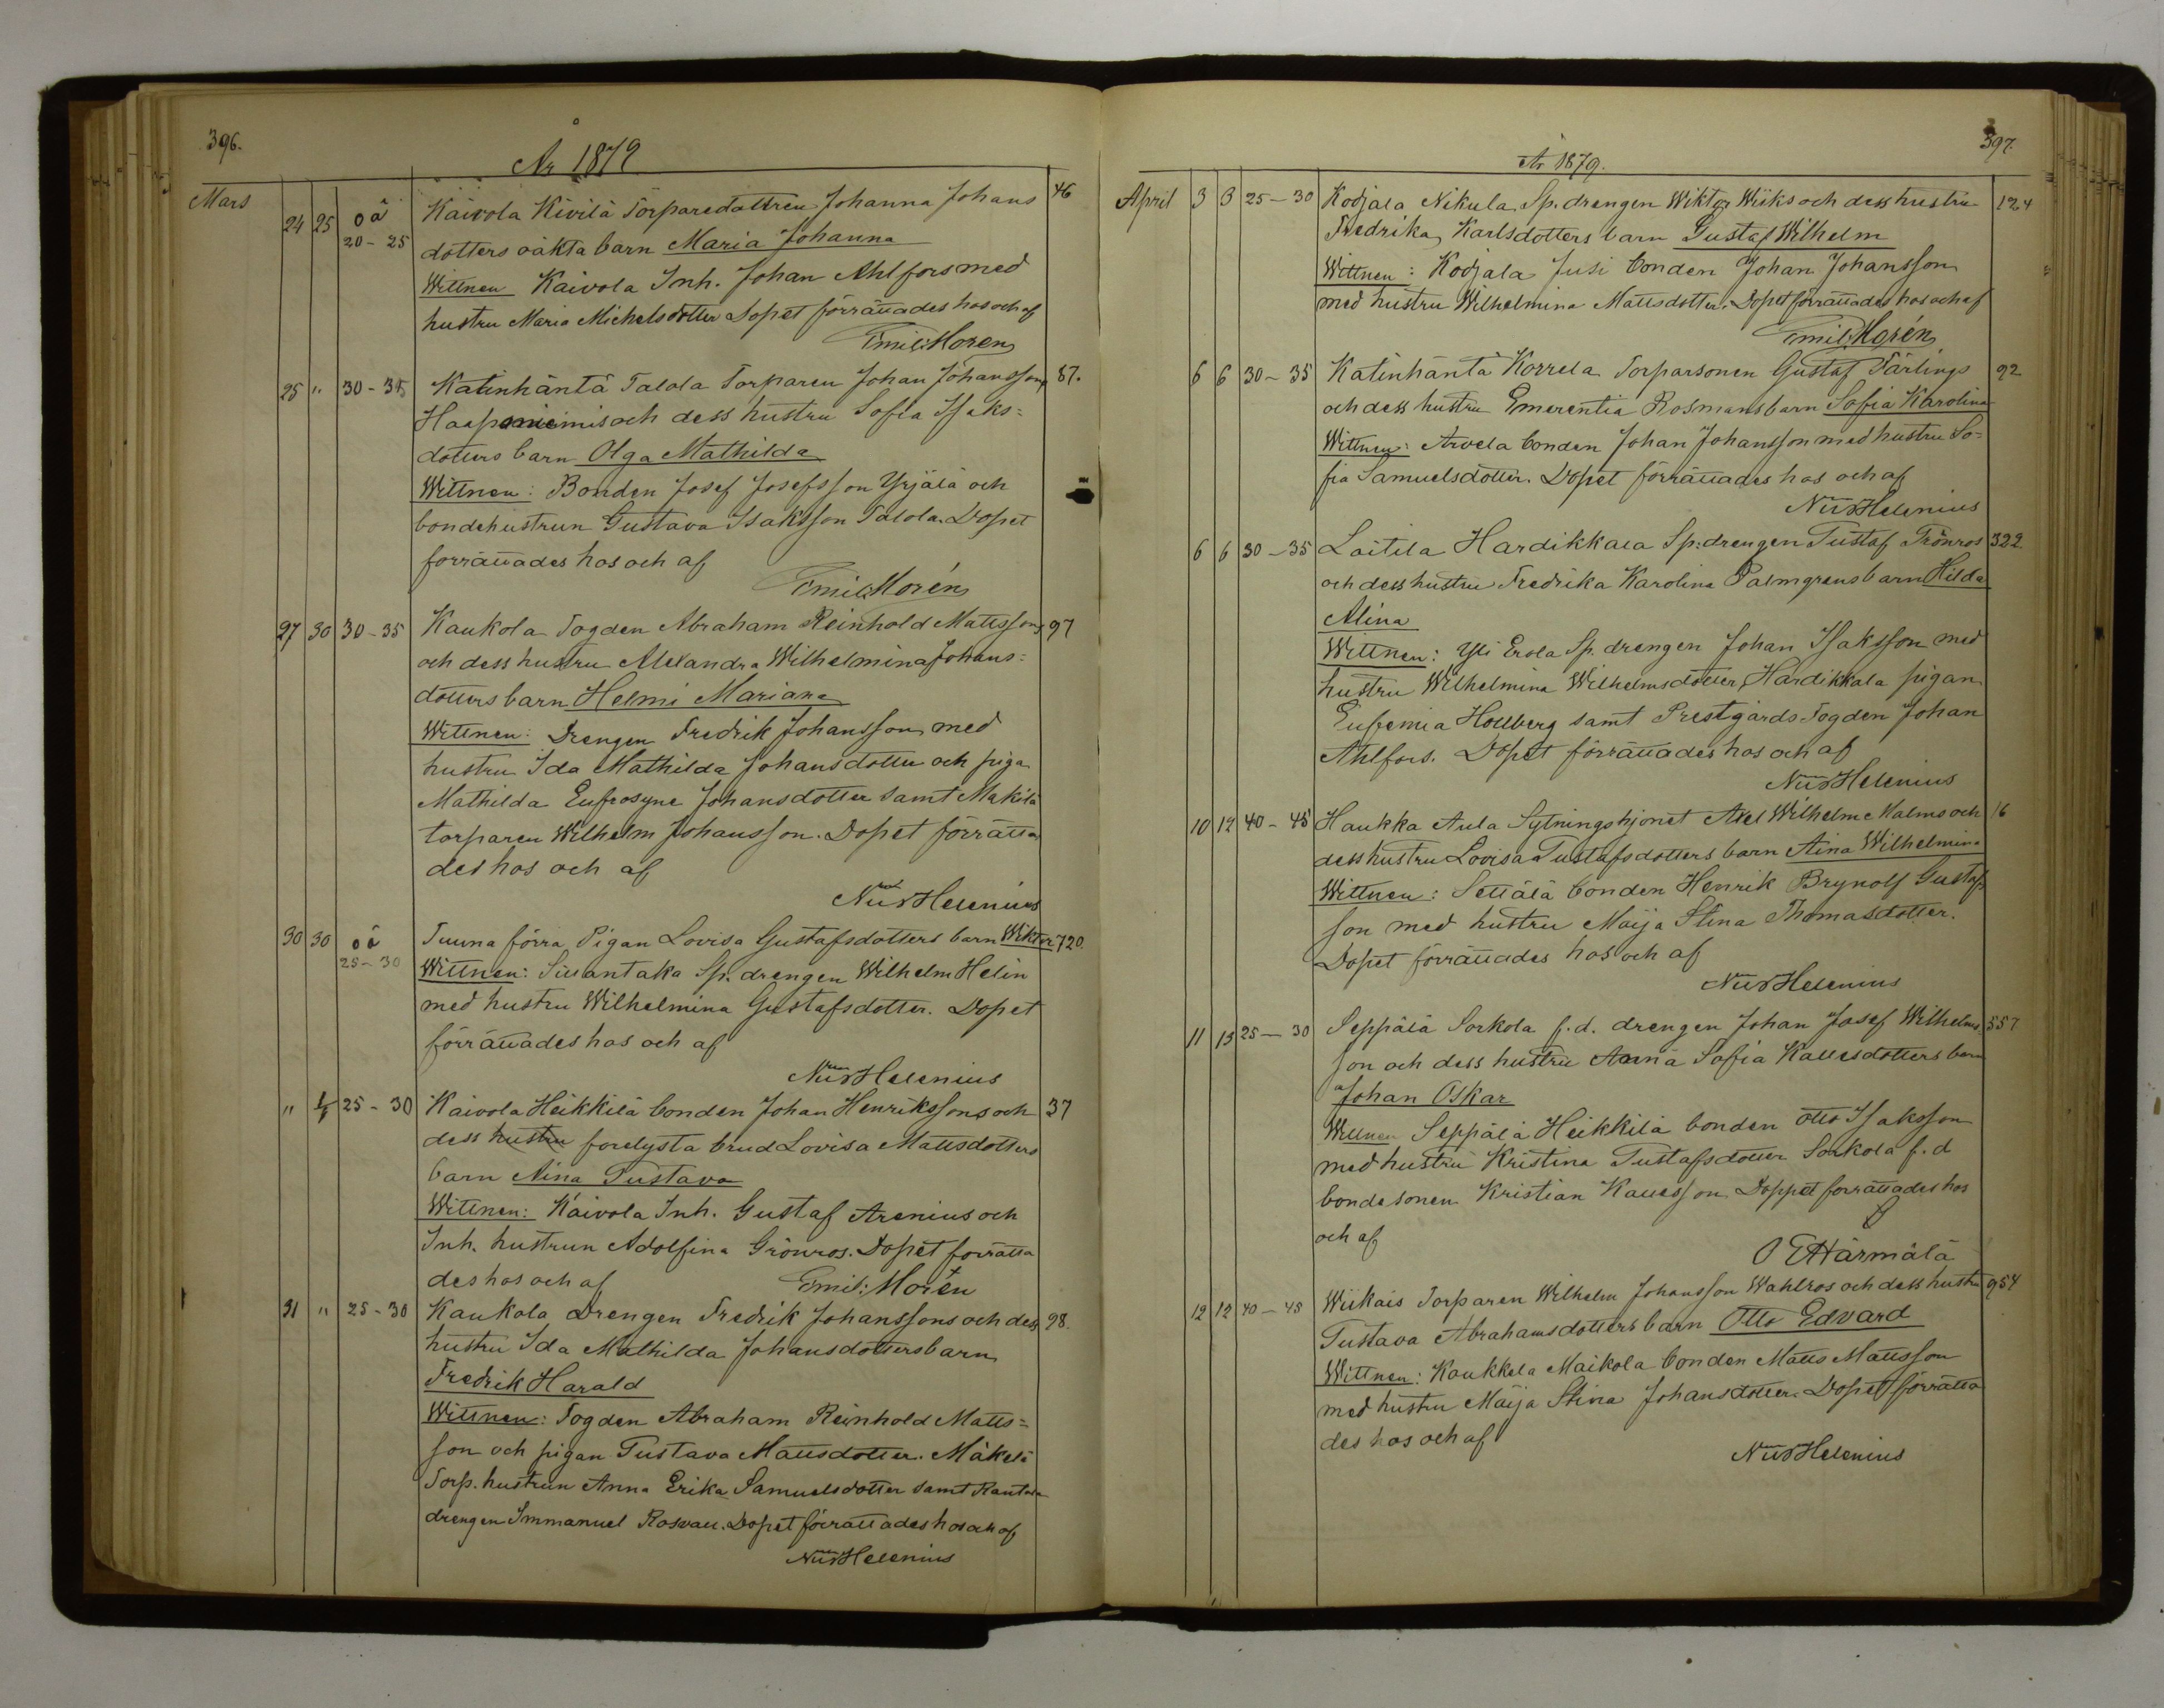 396.
År 1879
Mars
24 25 oä 20-25 Kaivola Kivilä Torparedottren Johanna Johans 46
dotters oäkta barn Maria Johanna
Wittnen Kaivola Inh. Johan Ahlfors med
hustru Maria Michelsdotter Dopet förrättades hos och af
Emil: Morén
25 " 30-35 Katinhäntä Talola Torparen Johan Johansson 87.
Haaponiemis och dess hustru Sofia Isaks=
dotters barn Olga Mathilda
Wittnen: Bonden Josef Josefsson Yrjälä och
bondehustrun Gustava Isaksson Talola. Dopet
förrättades hos och af
Emil: Morén
27 30 30-35 Kaukola Fogden Abraham Reinhold Mattssons 97
och dess hustru Alexandra Wilhelmina Johans=
dotters barn Helmi Mariana
Wittnen: Drengen Fredrik Johansson med
hustru Ida Mathilda Johansdotter och piga
Mathilda Eufrosyne Johansdotter samt Makilä
torparen Wilhelm Johansson. Dopet förrätta
des hos och af
Nils Helenius
30 30 oä 25-30 Tuuna förra Pigan Lovisa Gustafsdotters barn Wiktor 720.
Wittnen: Sillantaka Sp. drengen Wilhelm Helin
med hustru Wilhelmina Gustafsdotter. Dopet
förrättades hos och af
Nils Helenius
" 1/4 25-30 Kaivola Heikkilä bonden Johan Henrikssons och 37
dess hustru forelysta brud Lovisa Mattsdotters
barn Aina Gustava
Wittnen: Kaivola Inh. Gustaf Arenius och
Inh. hustrun Adolfina Grönros. Dopet forrätta
des hos och af Emil: Morén
31 " 25-30 Kaukola Drengen Fredrik Johanssons och dess 98.
hustru Ida Mathilda Johansdotters barn
Fredrik Harald
Wittnen: Fogden Abraham Reinhold Matts=
son och pigan Gustava Mattsdotter. Mäkelä
Torp. hustrun Anna Erika Samuelsdotter samt Rantala
drengen Immanuel Rosvall. Dopet förrättades hos och af
Nils Helenius
397.
År 1879.
April 3 3 25-30 Kodjala Nikula Sp. drengen Wiktor Wiiks och dess hustru 124
Fredrika Karlsdotters barn Gustaf Wilhelm
Wittnen: Kodjala Jusi bonden Johan Johansson
med hustru Wilhelmina Mattsdotter. Dopet förrättades hos och af
Emil: Morén
6 6 30-35 Katinhäntä Korrela Torparsonen Gustaf Färlings 92
och dess hustru Emerentia Rosmans barn Sofia Karolina
Wittnen: Arvela bonden Johan Johansson med hustru So=
fia Samuelsdotter. Dopet förrättades hos och af
Nils Helenius
6 6 30-35 Laitila Hardikkala Sp: drengen Gustaf Grönros 322
och dess hustru Fredrika Karolina Palmgrens barn Hilda
Alina
Wittnen: Yli Erola Sp. drengen Johan Isaksson med
hustru Wilhelmina Wilhelmsdotter, Hardikkala pigan
Eufemia Hollberg samt Prestgårds Fogden Johan
Ahlfors. Dopet förrättades hos och af
Nils Helenius
10 12 40-45 Haukka Aula Sytningshjonet Axel Wilhelm Malms och 16
dess hustru Lovisa Gustafsdotters barn Aina Wilhelmina
Wittnen: Settälä bonden Henrik Brynolf Gustafs
son med hustru Maija Stina Thomasdotter.
Dopet förrättades hos och af
Nils Helenius
11 13 25-30 Seppälä Sorkola f.d. drengen Johan Josef Wilhelms 557
son och dess hustru Anna Sofia Kallesdotters barn
Johan Oskar
Wittnen Seppälä Heikkilä bonden Otto Isaksson
med hustru Kristina Gustafsdotter Sorkola f.d
bonde sonen Kristian Kallesson Doppet forrättades hos
och af
O E Härmälä
12 12 40-45 Wiikais Torparen Wilhelm Johansson Wahlros och dess hustru 954
Gustava Abrahamsdotters barn Otto Edvard
Wittnen: Kaukkola Maikola bonden Matts Mattsson
med hustru Maija Stina Johansdotter. Dopet förrätta
des hos och af
Nils Helenius